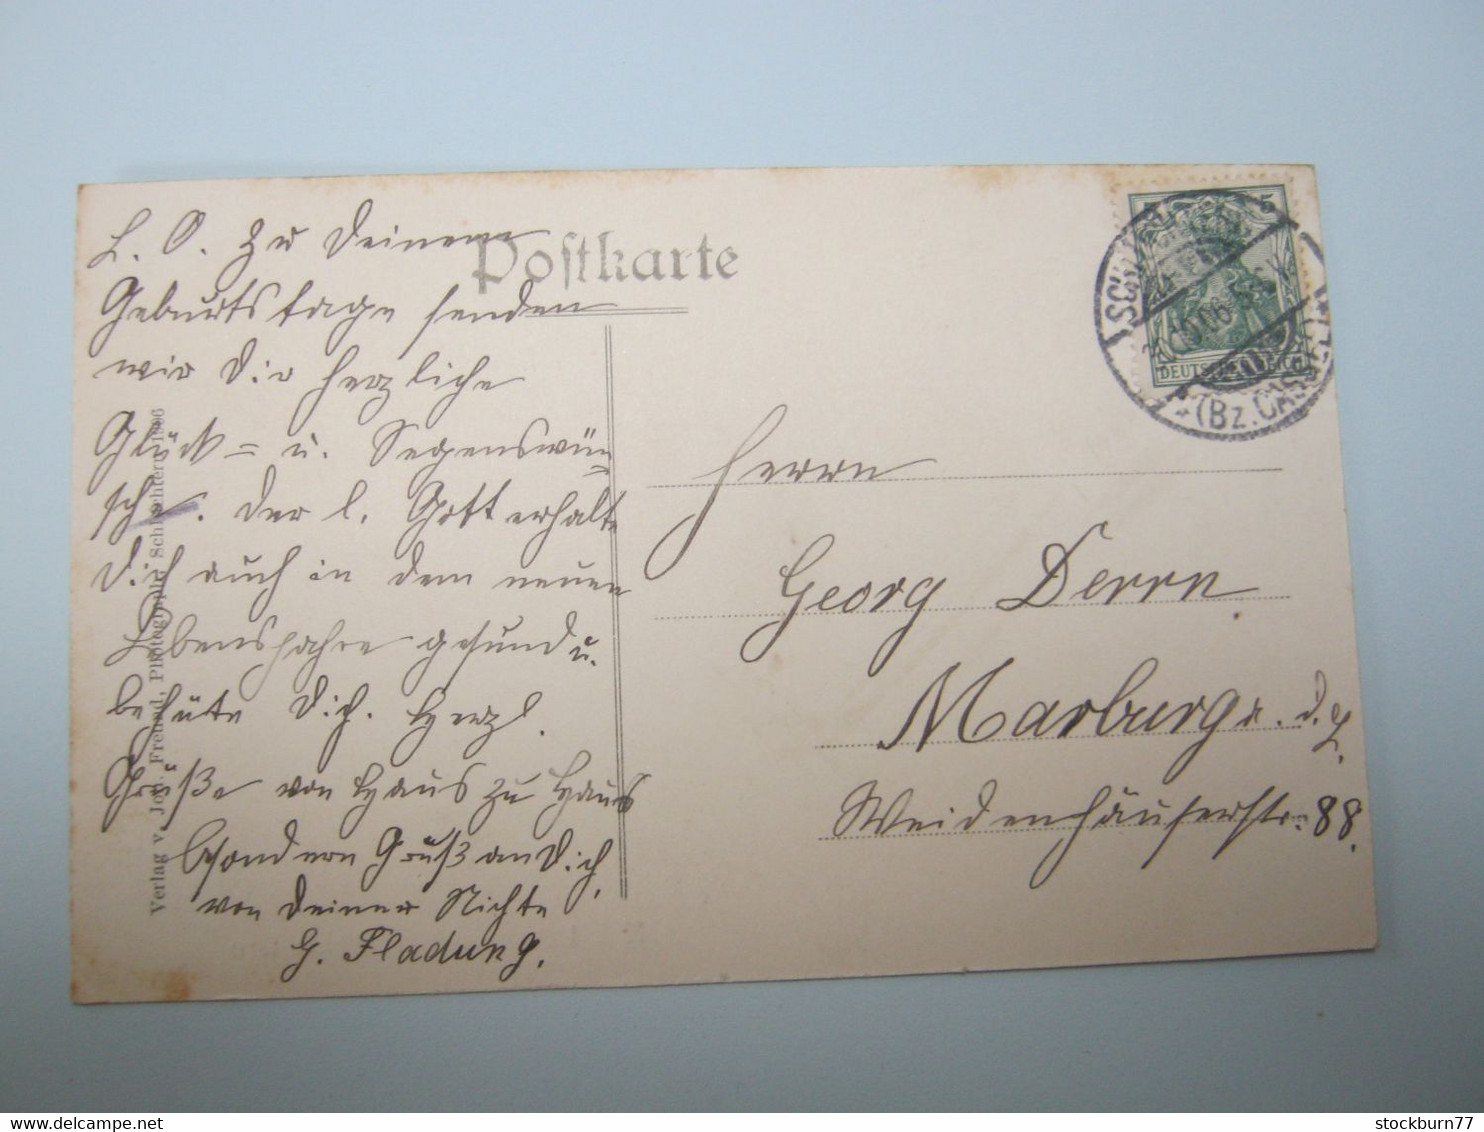 L. O. Zu Deinem
Geburtstage senden
wir Dir herzliche
Glück= u. Segenswün-
sche. Der l. Gott erhalte
Dich auch in dem neuen
Lebensjahre gesund u.
behüte Dich. Herzl.
Grüße von Haus zu Haus
besondern Gruß an Dich,
von Deiner Nichte
G. Fladung.
Postkarte
Verlag v. Joh. Freund, Photograph, Schlüchtern 1906
5 5
DEUTSCHES REICH
(Bz. CASSEL)
Herrn
Georg Derrn
Marburg a. d. L.
Weidenhäuserstr. 88.
stockburn77